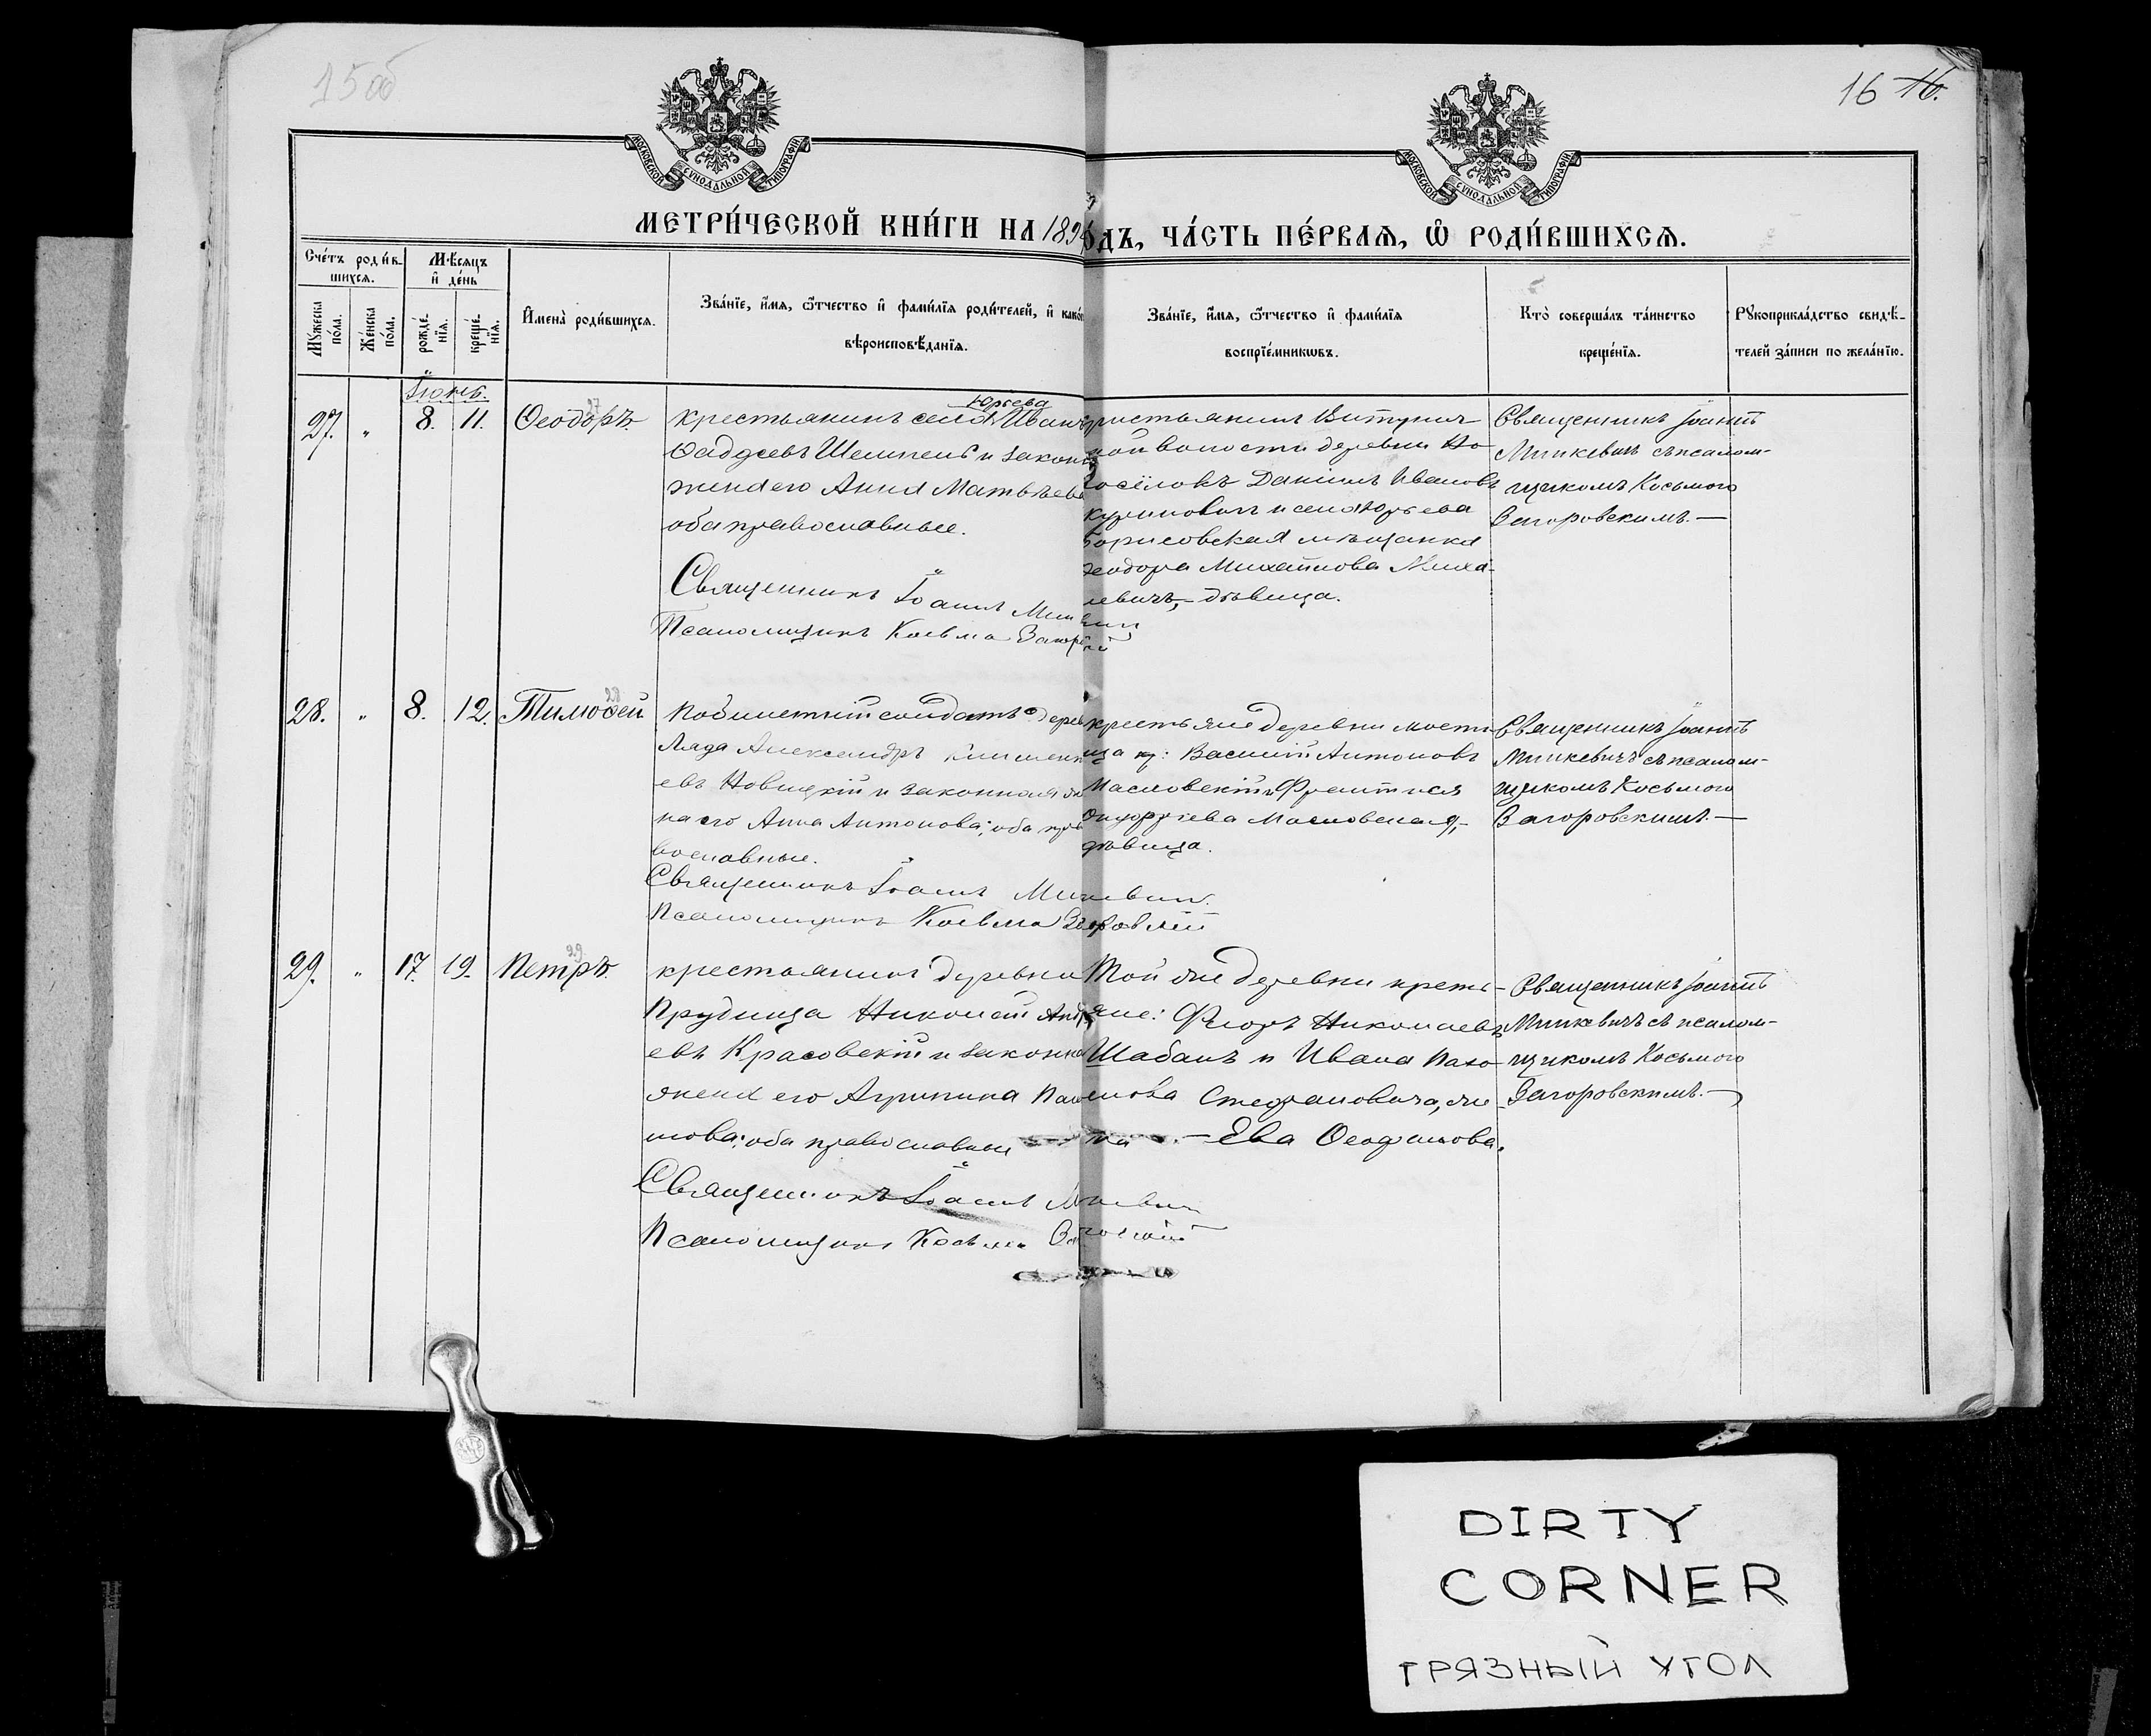 15 об
16 16.
МОСКОВСКОЙ СѴНОДАЛЬНОЙ ТИПОГРАФІИ
МОСКОВСКОЙ СѴНОДАЛЬНОЙ ТИПОГРАФІИ
МЕТРИ́ЧЕСКОЙ КНИ́ГИ НА 189
ОДЪ, ЧА́СТЬ ПЕ́РВАЯ, Ѡ РОДИ́ВШИХСЯ.
Сче́тъ роди́в-
шихся.
Мꙋ́жеска по́ла.
Же́нска по́ла.
Мѣ́сяцъ
и де́нь
рожде́-
нїя.
креще́-
нїя.
Имена̀ роди́вшихся.
Зва́нїе, и́мя, ѻ́тчество и фами́лїя роди́телей, и како́
вѣроисповѣ́данїя.
Зва́нїе, и́мя, ѻ́тчество и фами́лїя
воспрїе́мникѡвъ.
Кто̀ соверша́лъ та́инство
креще́нїя.
Рꙋкоприкла́дство свидѣ́-
телей за́писи по жела́нїю.
Іюнь.
27. " 8. 11. Ѳеодоръ. 27
Юрьева
крестьянинъ села Иванъ
Ѳаддеевъ Шемпель и законн
жена его Анна Матвѣева
оба православные.
Священникъ Іоаннъ Мин
Псаломщикъ Косьма Загор
деревни Но
сёлокъ Даніилъ Ивановъ
и села Юрьева
борисовская мѣщанка
Ѳеодора Михайлова Миха-
левичъ, - дѣвица.
Священникъ Іоаннъ
Минкевичъ съ псалом-
щикомъ Косьмою
Загоровскимъ. —
28. " 8. 12. Тимоѳей 28
солдатъ дерев
Ляда Александръ Климент
евъ Новицкій и законная же
на его Анна Антонова; оба пра
вославные.
Священникъ Іоаннъ Минкевичъ.
Псаломщикъ Косьма Загоровскій
крестьяне деревни Мости
ща кр: Василій Антоновъ
Масловскій и
Масловская, -
дѣвица.
Священникъ Іоаннъ
Минкевичъ съ псалом-
щикомъ Косьмою
Загоровскимъ. —
29. " 17. 19. Петръ. 29
крестьянинъ деревни
Прудища Николай Андр
евъ Красовскій и законна
жена его Агрипина Пах
мова; оба православные
Священникъ Іоаннъ Минкевичъ
Псаломщикъ Косьма
Той же деревни кресть-
яне: Флоръ Николаевъ
Шабанъ и Ивана Пахо
мова Стефановича, же
на - Ева Ѳеофанова.
Священникъ Іоаннъ
Минкевичъ съ псалом-
щикомъ Косьмою
Загоровскимъ. —
DIRTY
CORNER
ГРЯЗНЫЙ УГОЛ